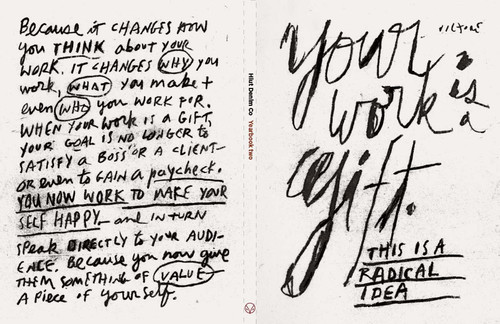 Because it CHANGES HOW
you THINK about your
WORK. IT CHANGES WHY you
work, WHAT you make +
even WHO you WORK FOR.
WHEN YOUR WORK is A GIFT,
YOUR GOAL IS NO LONGER to
SATISFY A BOSS OR A CLIENT—
OR even to GAIN A paycheck.
YOU NOW WORK TO MAKE YOUR
SELF HAPPY— and IN TURN
SPEAK DIRECTLY to YOUR AUDI-
ENCE. Because you now give
THEM SOMETHING OF VALUE—
A piece of yourself.
Hiut Denim Co Yearbook two
your
work
is
a
gift.
THIS IS A
RADICAL
IDEA